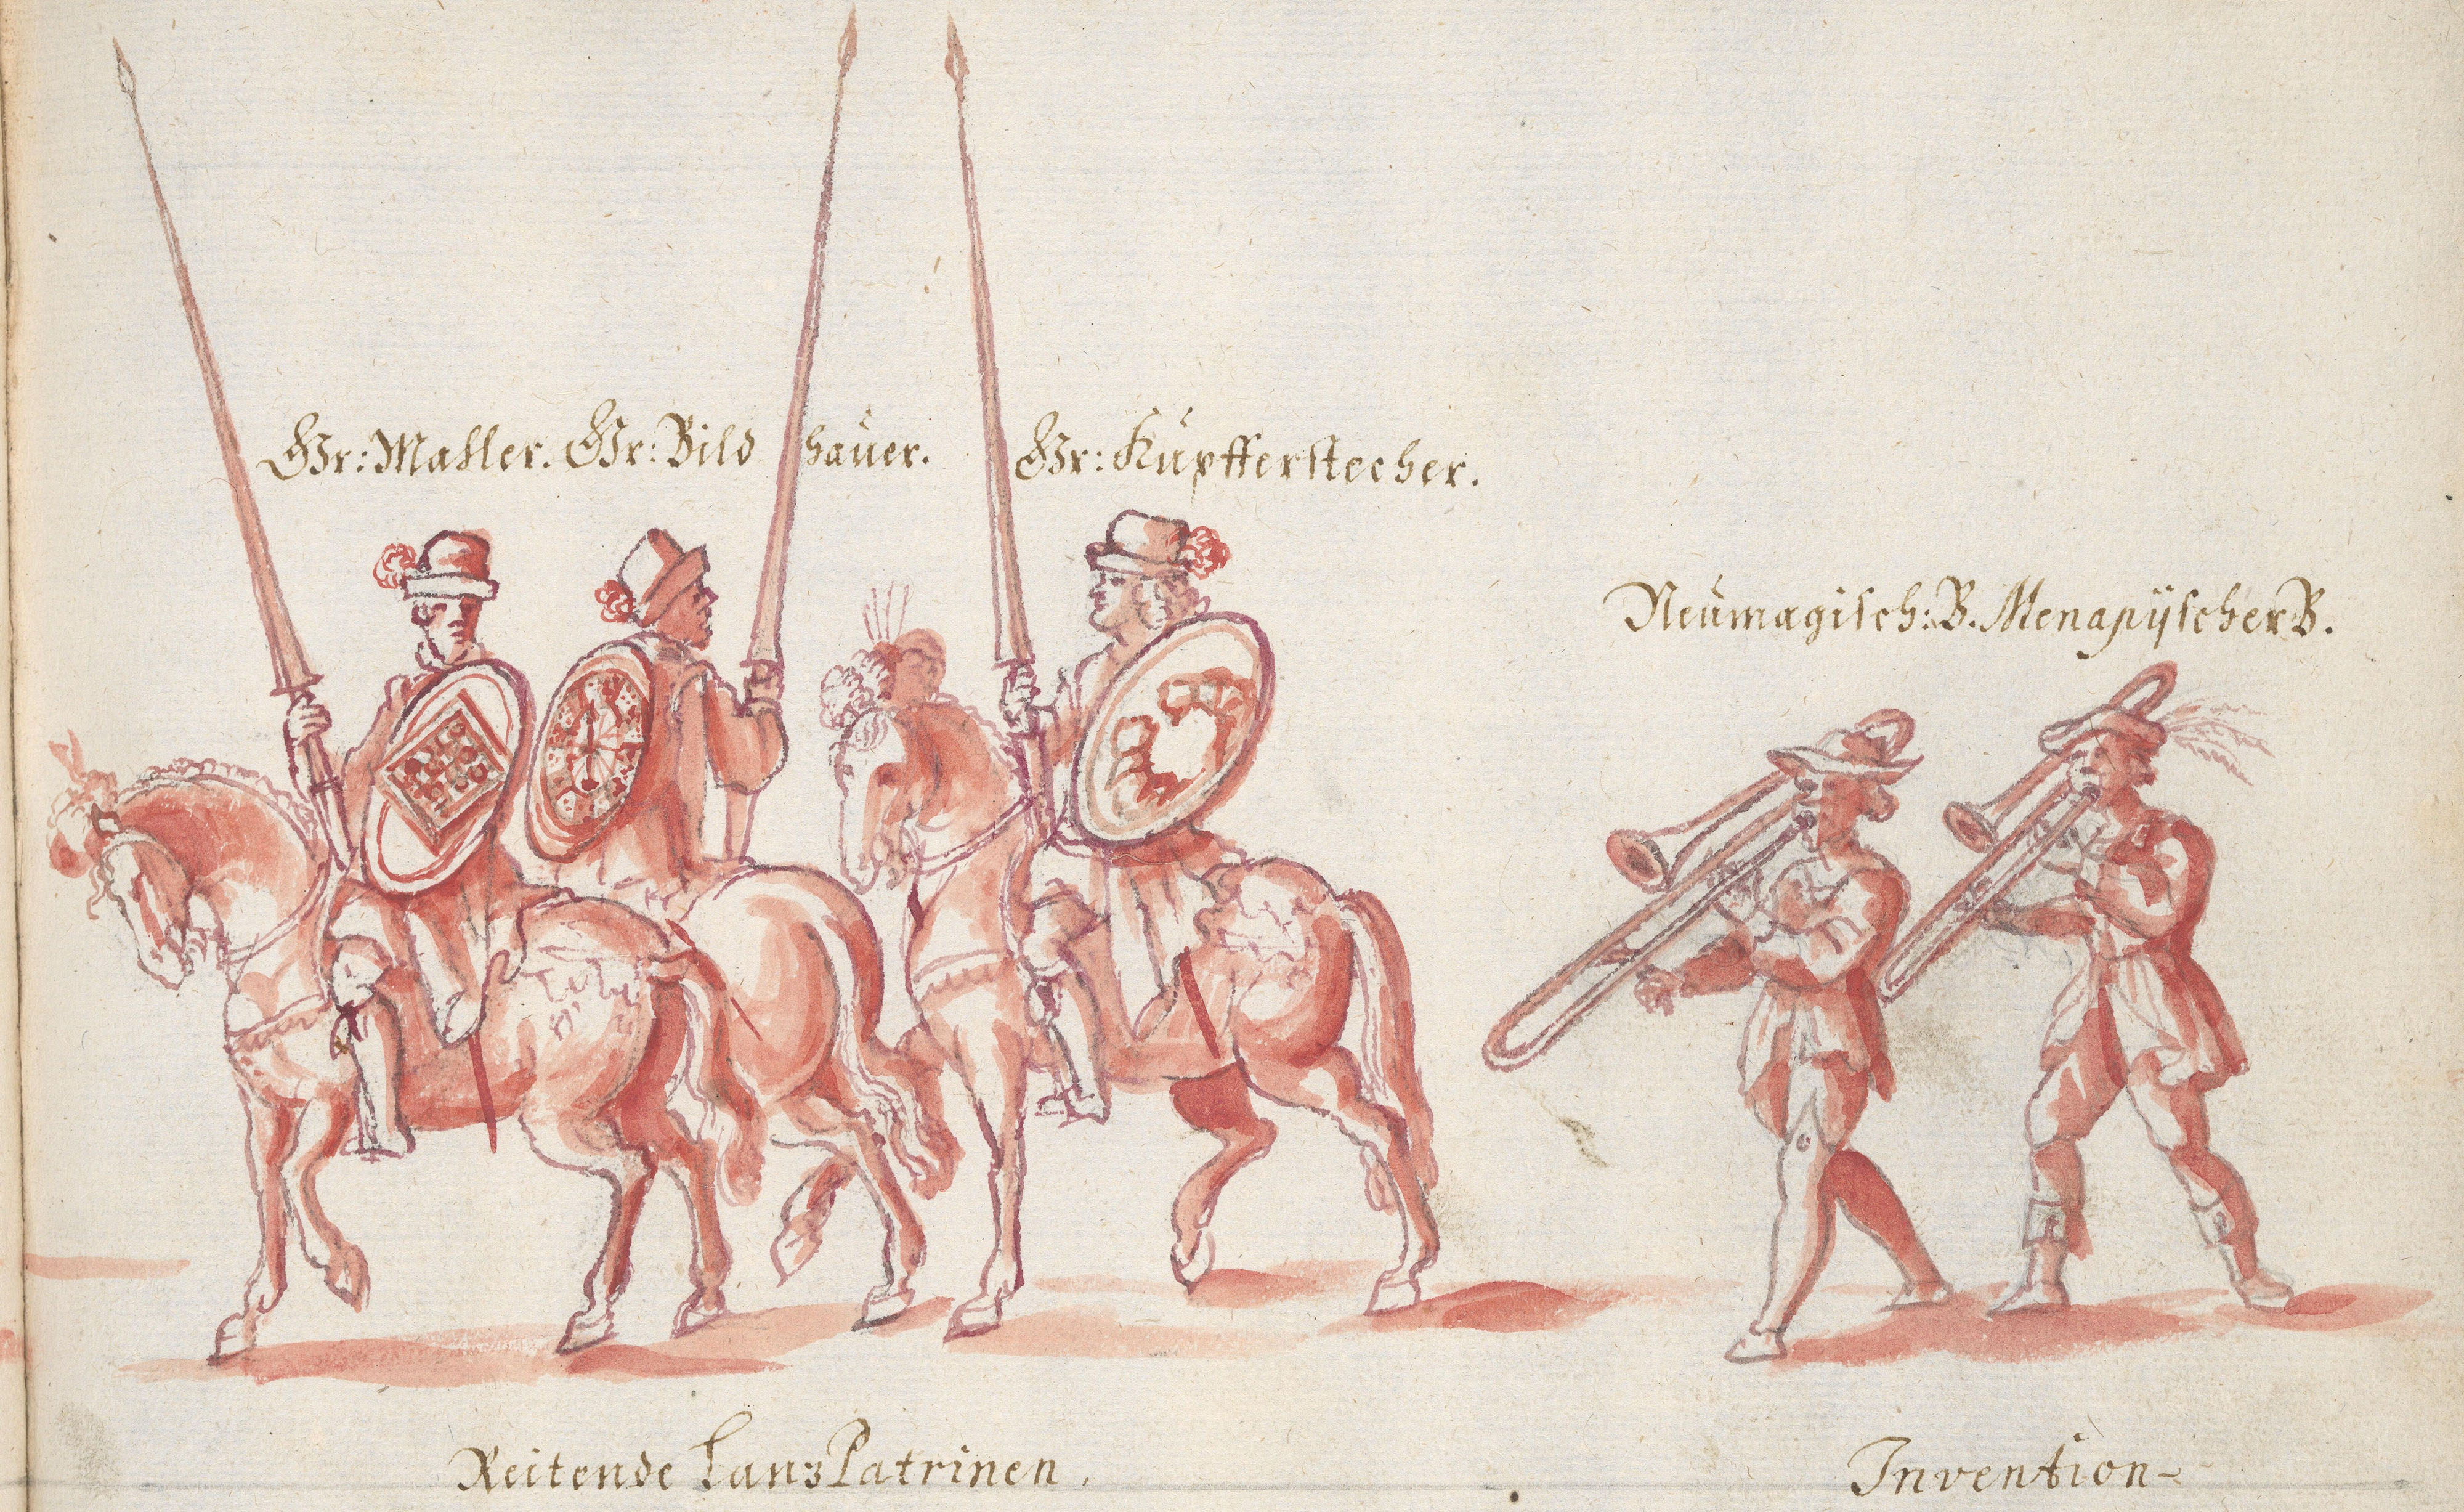 Hr: Mahler. Hr: Bildhaŭer. Hr: Kŭpfferstecher.
Neŭmagisch: B. Menapijscher B.
Reitende Lanz Patrinen.
Invention-